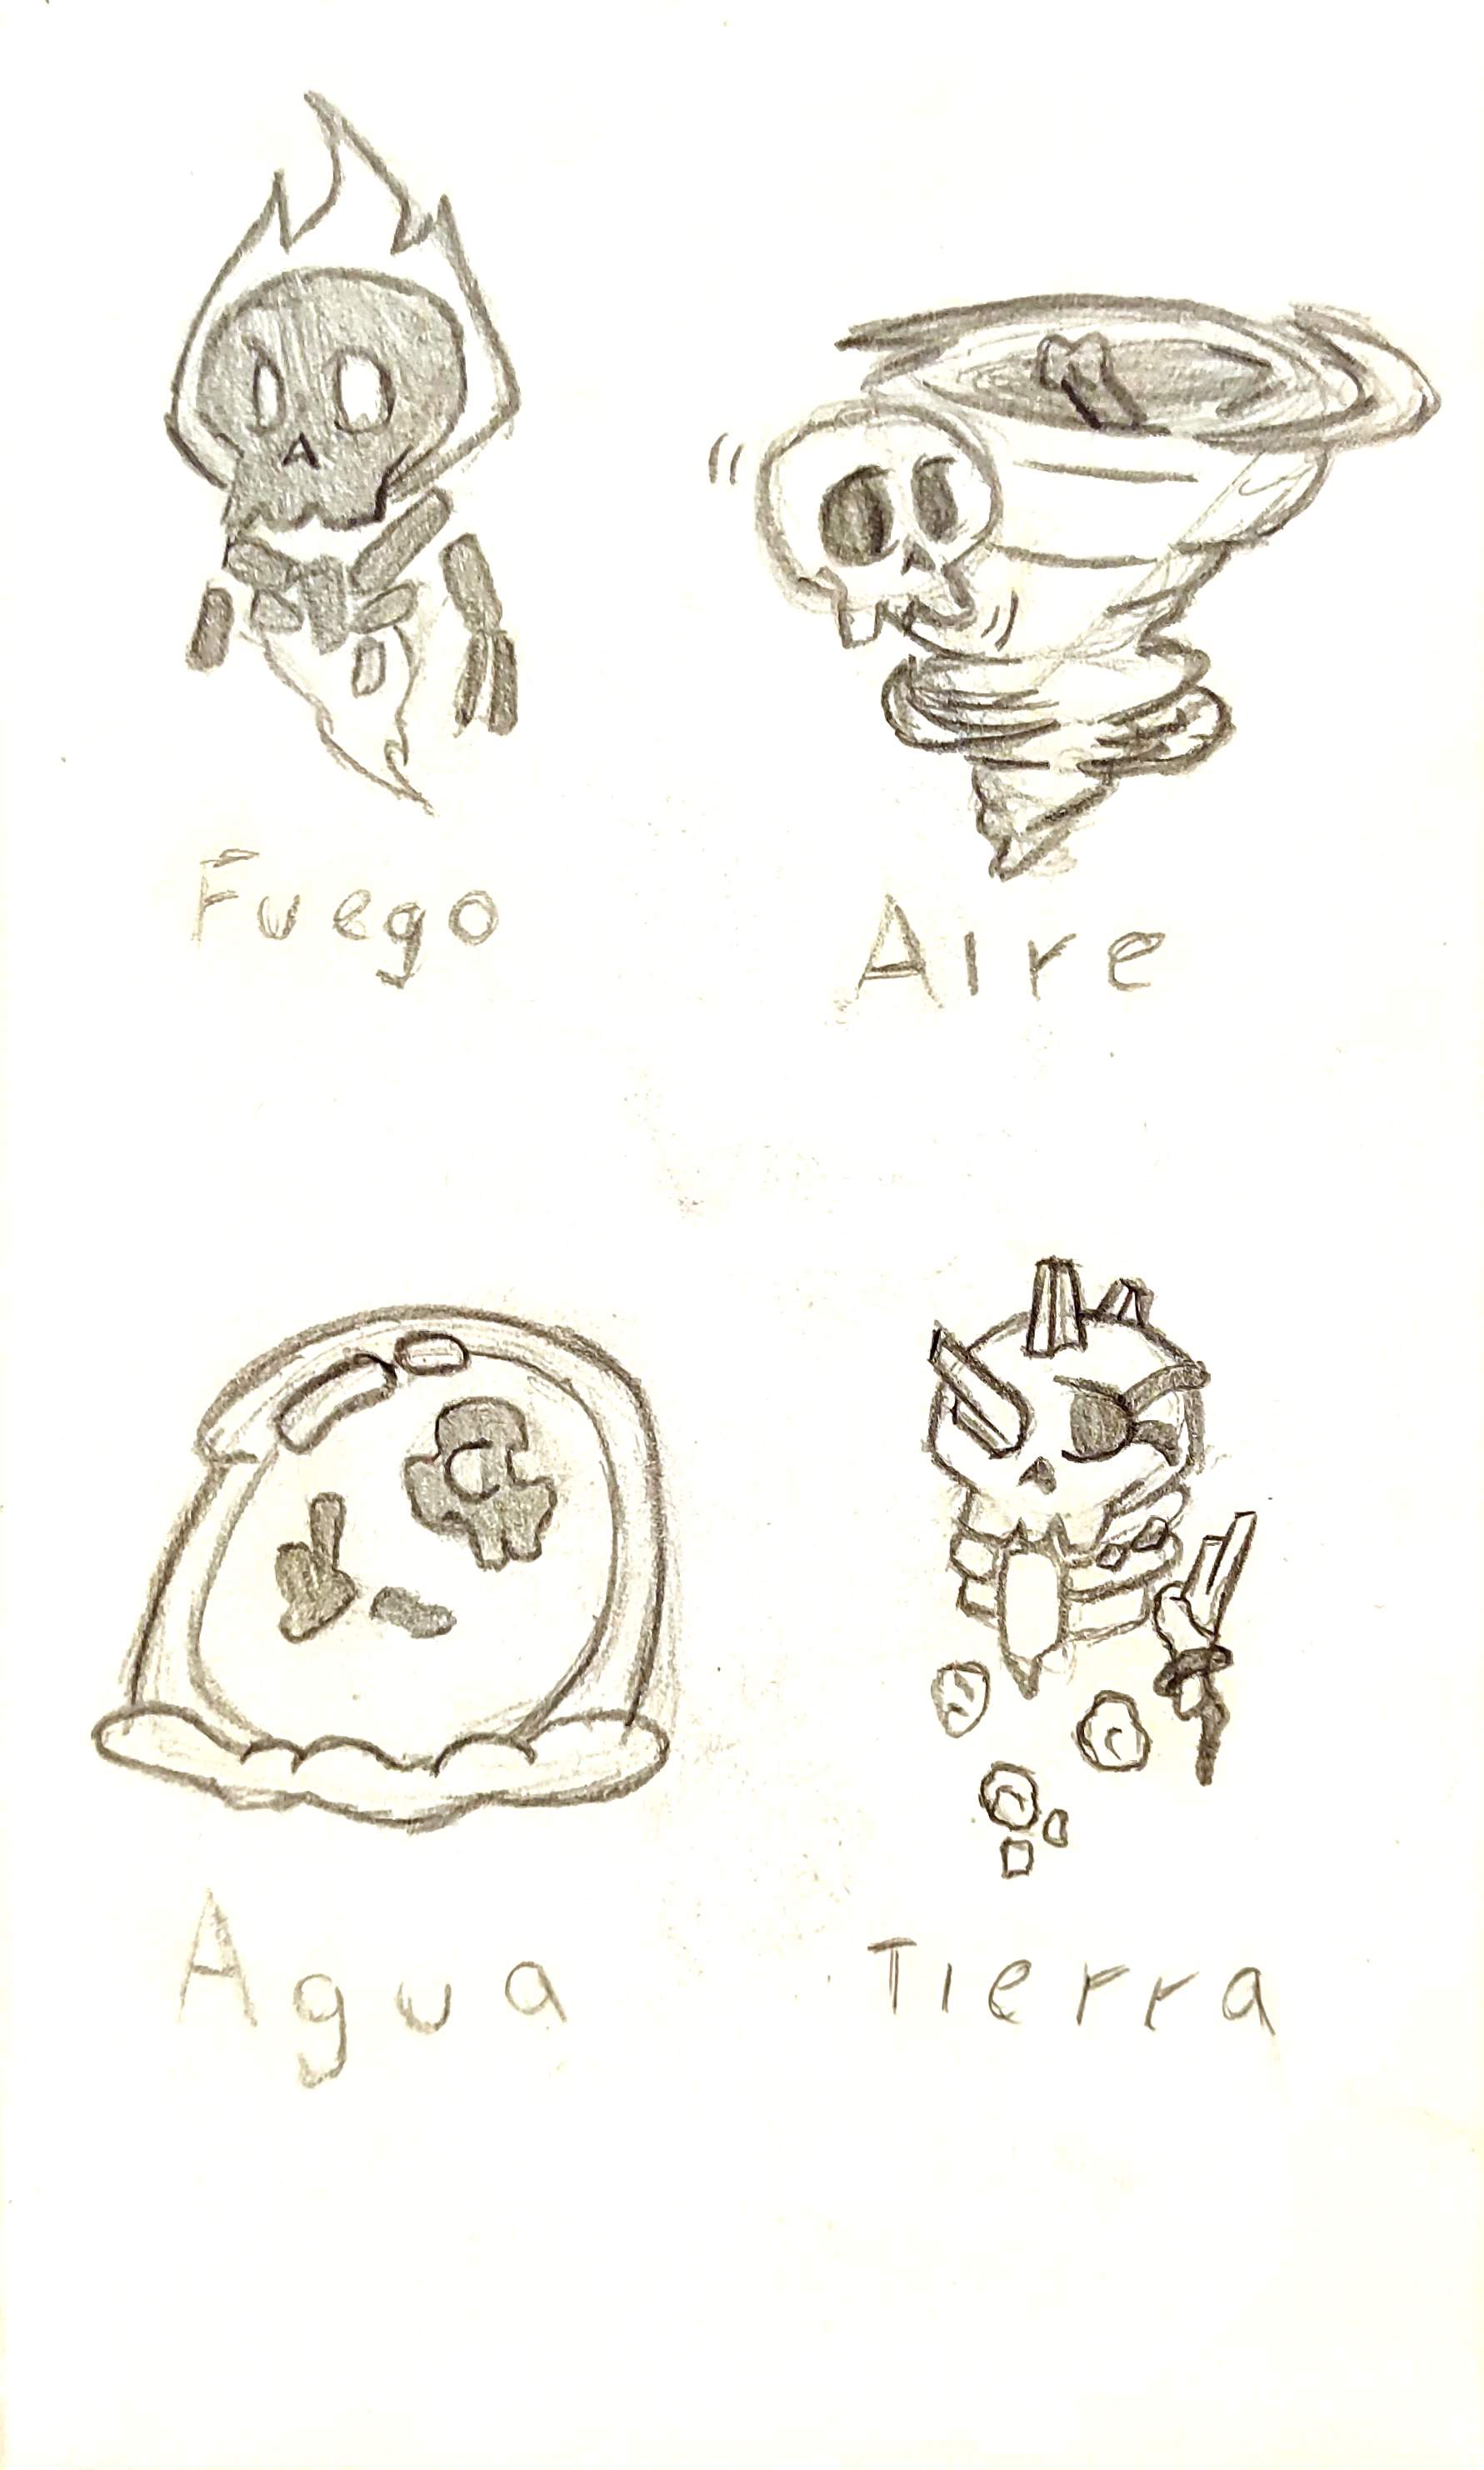 Fuego
Aire
Agua
Tierra